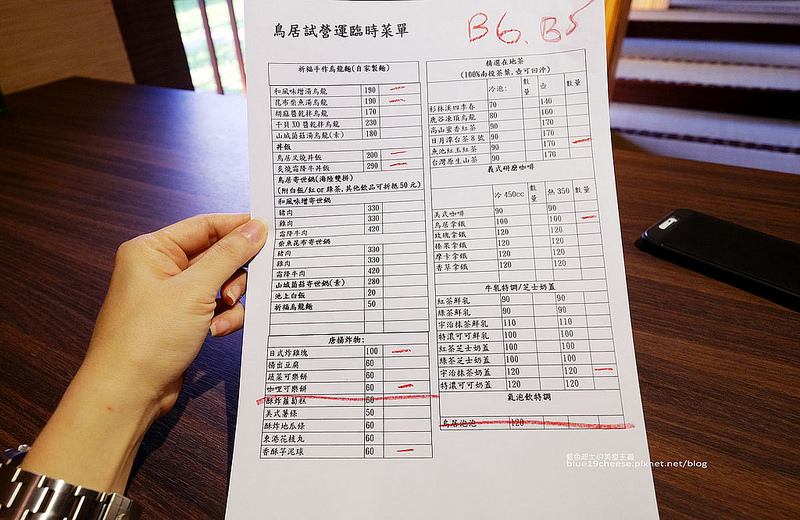 鳥居試營運臨時菜單
B6. B5
祈福手作烏龍麵(自家製麵)
和風味增湯烏龍 190
花布柴魚湯烏龍 190
胡麻醬乾拌烏龍 170
干貝XO醬乾拌烏龍 230
山城菌菇湯烏龍(素) 180
丼飯
鳥居叉燒丼飯 200
炙燒霜降牛丼飯 290
鳥居寄世鍋(海陸雙拼)
(附白飯/紅or綠茶,其他飲品可折抵50元)
和風味增寄世鍋
豬肉 330
雞肉 330
霜降牛肉 420
柴魚昆布寄世鍋
豬肉 330
雞肉 330
霜降牛肉 420
山城菌菇寄世鍋(素) 280
池上白飯 20
祈福烏龍麵 50
唐揚炸物:
日式炸雞塊 100
揚出豆腐 60
蔬菜可樂餅 60
咖哩可樂餅 60
酥炸蘿蔔糕 60
美式薯條 50
酥炸地瓜條 60
東港花枝丸 60
香酥芋泥球 60
精選在地茶
(100%南投茶葉,壺可回沖)
冷泡: 數量 壺 數量
杉林溪四季春 70 140
鹿谷凍頂烏龍 80 160
高山蜜香紅茶 90 170
日月潭台茶8號 90 170
魚池紅玉紅茶 90 170
台灣原生山茶 90 170
義式研磨咖啡
冷450cc 數量 熱350 數量
美式咖啡 90 90
鳥居拿鐵 100 100
玫瑰拿鐵 120 120
榛果拿鐵 120 120
摩卡拿鐵 120 120
香草拿鐵 120 120
牛乳特調/芝士奶蓋
紅茶鮮乳 90 90
綠茶鮮乳 90 90
宇治抹茶鮮乳 110 110
特濃可可鮮乳 100 100
紅茶芝士奶蓋 100 100
綠茶芝士奶蓋 100 100
宇治抹茶奶蓋 120 120
特濃可可奶蓋 120 120
氣泡飲特調
鳥居泡泡 120
藍色起士的美食主義
blue19cheese.pixnet.net/blog